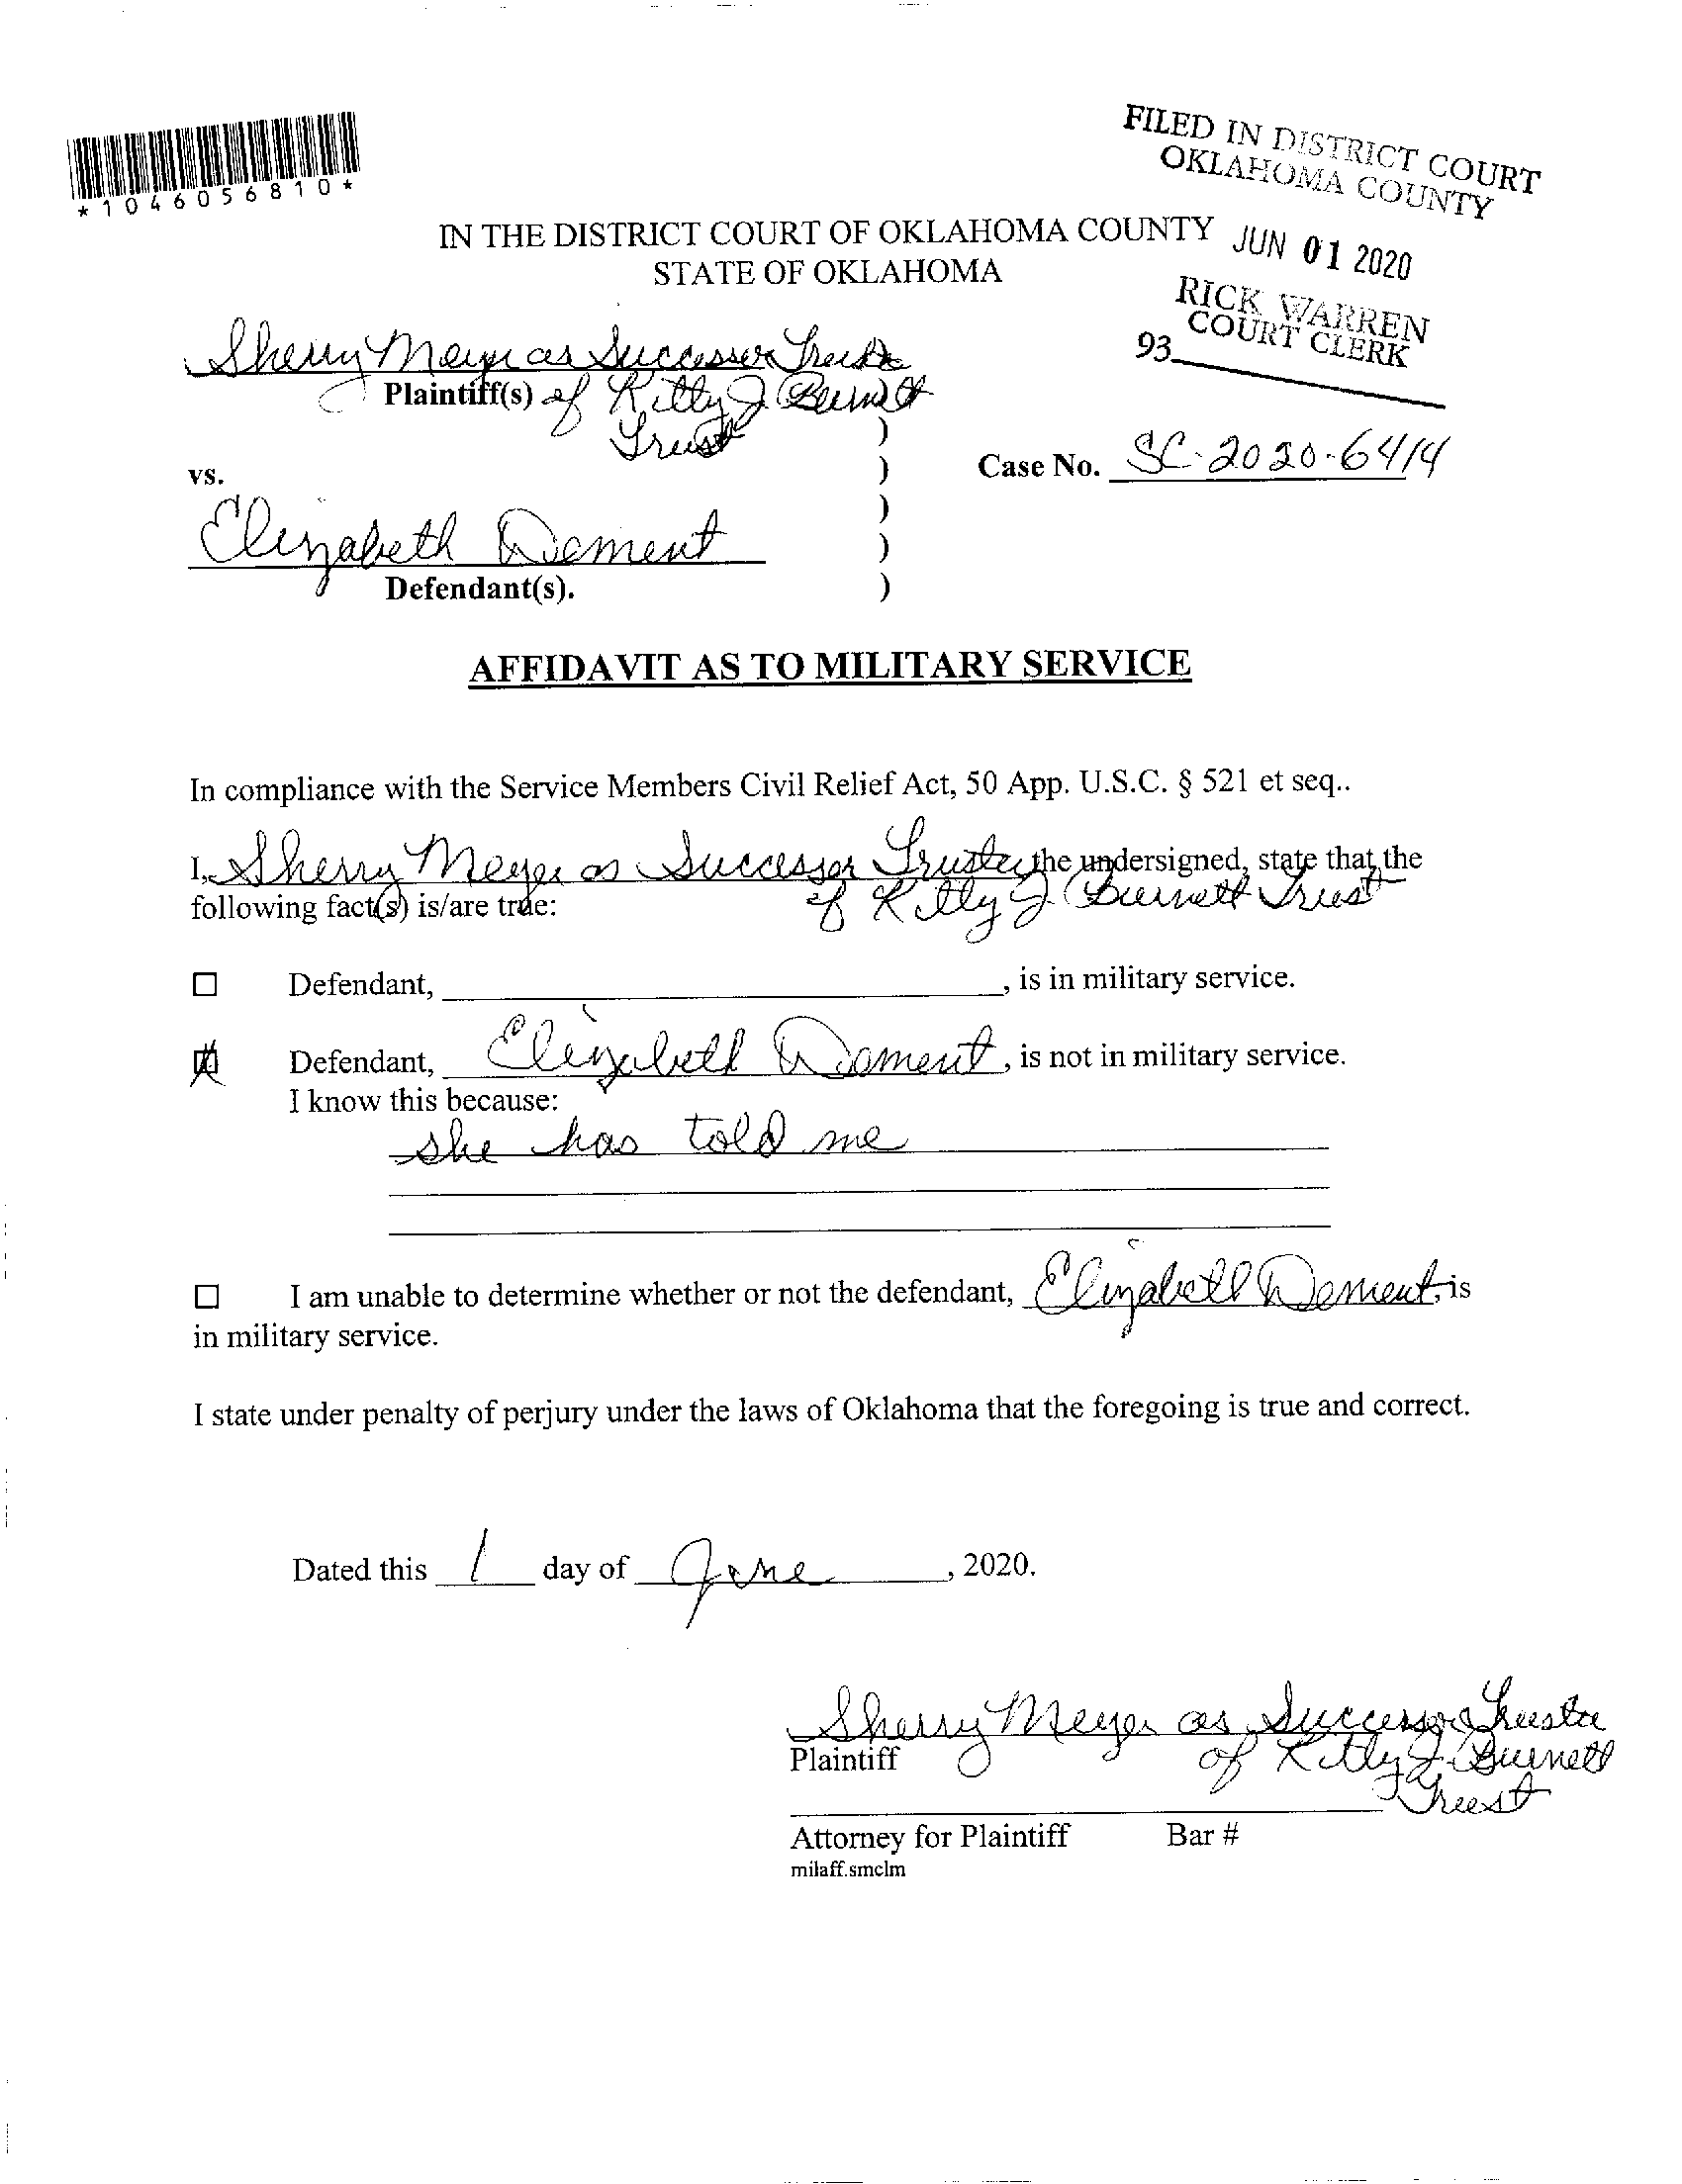 FILED IN DISTRICT COURT
OKLAHOMA COUNTY
*1046056810*
IN THE DISTRICT COURT OF OKLAHOMA COUNTY
STATE OF OKLAHOMA
JUN 01 2020
RICK WARREN
COURT CLERK
93
Sherry Meyer as Successor Trustee
Plaintiff(s) of Kitty J Burnett
Trust
)
vs.
)
Case No. SC-2020-6414
)
Elizabeth Dement
)
Defendant(s).
)
AFFIDAVIT AS TO MILITARY SERVICE
In compliance with the Service Members Civil Relief Act, 50 App. U.S.C. § 521 et seq..
I, Sherry Meyer as Successor Trustee, the undersigned, state that the
of Kitty J Burnett Trust
following fact(s) is/are true:
☐ Defendant, , is in military service.
☒ Defendant, Elizabeth Dement, is not in military service.
I know this because:
she has told me
☐ I am unable to determine whether or not the defendant, Elizabeth Dement, is
in military service.
I state under penalty of perjury under the laws of Oklahoma that the foregoing is true and correct.
Dated this 1 day of June, 2020.
Sherry Meyer as Successor Trustee
Plaintiff of Kitty J. Burnett
Trust
Attorney for Plaintiff Bar #
milaff.smclm